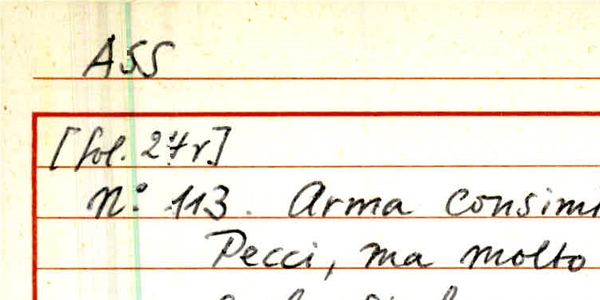 ASS
[fol. 27r]
N° 113. Arma
Pecci, ma molto